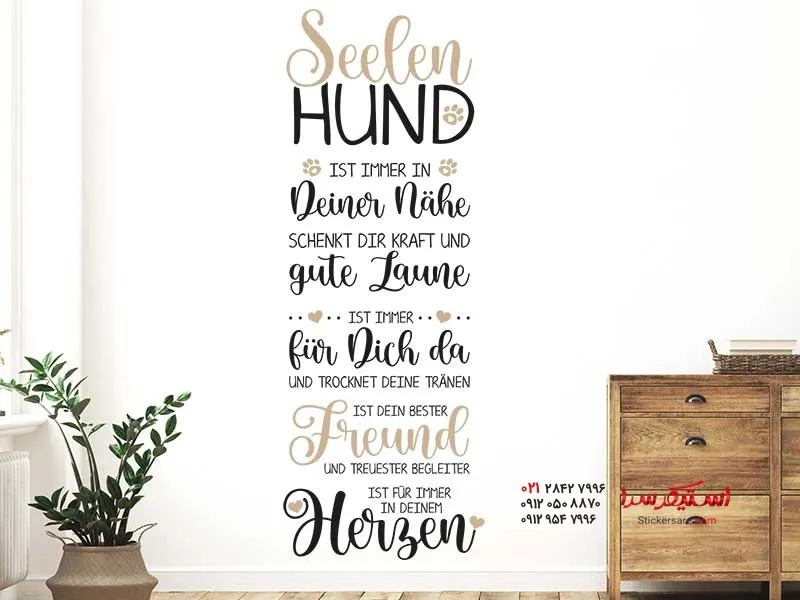 Seelen
HUND
IST IMMER IN
Deiner Nähe
SCHENKT DIR KRAFT UND
gute Laune
IST IMMER
für Dich da
UND TROCKNET DEINE TRÄNEN
IST DEIN BESTER
Freund
UND TREUESTER BEGLEITER
IST FÜR IMMER
IN DEINEM
Herzen
۰۲۱ ۲۸۴۲ ۷۹۹۶
۰۹۱۲ ۰۵۰ ۸۸۷۰
۰۹۱۲ ۹۵۴ ۷۹۹۶
استیکر سرا
Stickersara.com